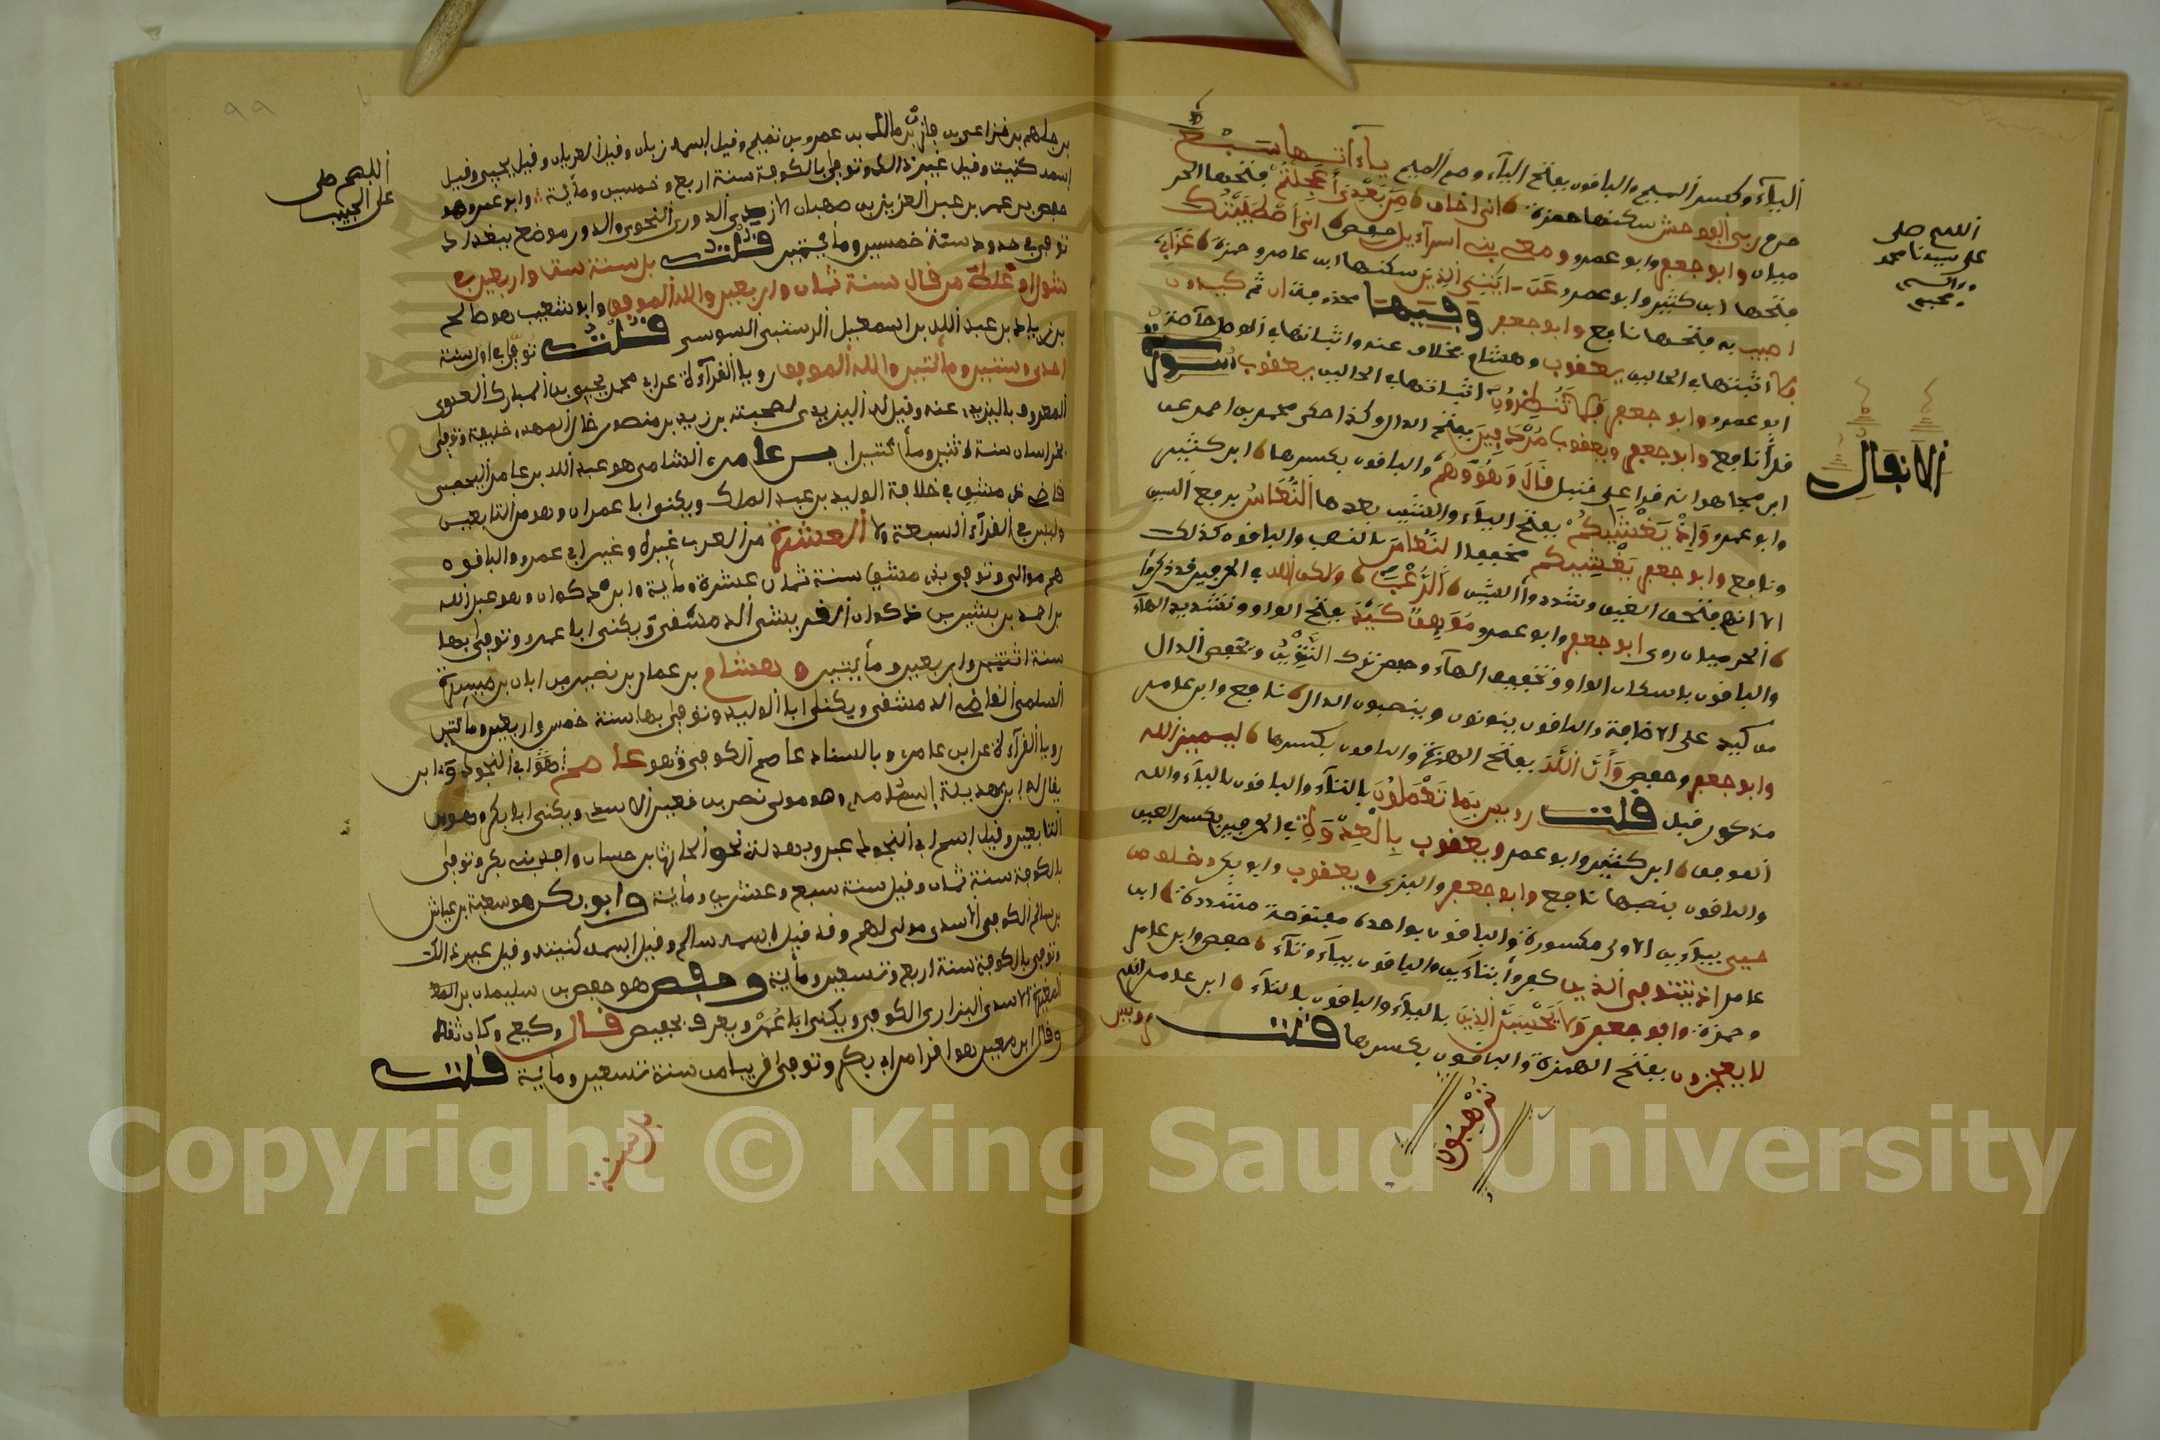 اللهم صل
على سيدنا محمد
واله
وصحبه
الانفال
الياء وكسر الميم والباقون بفتح الياء وضم الميم ياءاتها سبع
حرم ربي الفواحش سكنها حمزة اني اخاف من بعدي أعجلتم فتحها الحر
ميان وابو جعفر وابو عمرو ومعي بني اسرآءيل حفص اني اصطفيتك
فتحها ابن كثير وابو عمرو عن ءايتي الذين سكنها ابن عامر وحمزة عذابي
اصيب به فتحها نافع وابو جعفر وفيها محذوفتان ثم كيدون
اثبتها في الحالين يعقوب وهشام بخلاف عنه واثبتها في الوصل خاصة
ابو عمرو وابو جعفر فلا تنظرون اثبتها في الحالين يعقوب سورة
قرأ نافع وابو جعفر ويعقوب مردفين بفتح الدال وكذا حكى محمد بن احمد عن
ابن مجاهد انه قرا على قنبل قال وهو وهم والباقون بكسرها ابن كثير
وابو عمرو وإذ يغشيكم بفتح الياء والشين بعدها النعاس برفع السين
ونافع وابو جعفر يغشيكم مخففا النعاس بالنصب والباقون كذلك
الا انهم فتحوا الغين وشددوا الشين الرعب ولكن الله في الحرفين قد ذكرا
الحرميان وابو جعفر وابو عمرو موهن كيد بفتح الواو وتشديد الهاء
والباقون باسكان الواو وتخفيف الهاء وحفص بترك التنوين ويخفض الدال
من كيد على الاضافة والباقون ينونون وينصبون الدال نافع وابن عامر
وابو جعفر وحفص وأن الله بفتح الهمزة والباقون بكسرها ليميز الله
مذكور قبل قلت رويس بما تعملون بالتاء والباقون بالياء والله
الموفق ابن كثير وابو عمرو ويعقوب بالعدوة في الحرفين بكسر العين
والباقون بضمها نافع وابو جعفر والبزي ويعقوب وابو بكر وخلف من
حيي بياءين الاولى مكسورة والباقون بواحدة مفتوحة مشددة ابن
عامر إذ تتوفى الذين كفروا بتاءين والباقون بياء وتاء حفص وابن عامر
وحمزة وابو جعفر ولا يحسبن الذين بالياء والباقون بالتاء ابن عامر انهم
لا يعجزون بفتح الهمزة والباقون بكسرها قلت رويس
ترهبون
٩٩
اللهم صل
على الحبيب
بن جلهم بن خزاعي بن مازن بن مالك بن عمرو بن تميم وقيل اسمه زبان وقيل العريان وقيل يحيى وقيل
اسمه كنيته وقيل غير ذلك وتوفي بالكوفة سنة اربع وخمسين ومائة وابو عمرو هو
حفص بن عمر بن عبد العزيز بن صهبان الازدي الدوري النحوي والدور موضع ببغداد
توفي في حدود سنة خمسين ومائتين قلت بل سنة ست واربعين في
شوال وغلط من قال سنة ثمان واربعين والله الموفق وابو شعيب هو صالح
بن زياد بن عبد الله بن اسمعيل الرستبي السوسي قلت توفي في اول سنة
احدى وستين ومائتين والله الموفق رويا القرآءة عن ابي محمد يحيى بن المبارك العدوي
المعروف باليزيدي عنه وقيل له اليزيدي لصحبته يزيد بن منصور خال المهدي خليفة وتوفي
بخراسان سنة اثنين ومائتين ابن عامر الشامي هو عبد الله بن عامر اليحصبي
قاضي دمشق في خلافة الوليد بن عبد الملك ويكنى ابا عمران وهو من التابعين
وليس في القرآء السبعة ولا العشرة من العرب غيره وغير ابي عمرو والباقون
هم موالي وتوفي بدمشق سنة ثمان عشرة ومائة وابن ذكوان وهو عبد الله
بن احمد بن بشير بن ذكوان القريشي الدمشقي ويكنى ابا عمرو وتوفي بها
سنة اثنتين واربعين ومائتين وهشام بن عمار بن نصير بن ابان بن ميسرة
السلمي القاضي الدمشقي ويكنى ابا الوليد وتوفي بها سنة خمس واربعين ومائتين
رويا القرآءة عن ابن عامر وبالسناد عاصم الكوفي وهو عاصم بن ابي النجود وابن
يقال له بن بهدلة وهو مولى نصر بن قعين الاسدي ويكنى ابا بكر وهو من
التابعين وقيل اسم ابي النجود عبد وبهدلة نحو الحارث بن حسان وافد بني بكر وتوفي
بالكوفة سنة ثمان وقيل سنة سبع وعشرين ومائة وابو بكر هو شعبة بن عياش
بن سالم الكوفي الاسدي مولى لهم وقد قيل اسمه سالم وقيل اسمه كنيته وقيل غير ذالك
وتوفي بالكوفة سنة اربع وتسعين ومائة وحفص هو حفص بن سليمان بن المغ
المغيرة الاسدي البزاري الكوفي ويكنى ابا عمر ويعرف بحفيص قال وكيع وكان ثقة
وقال ابن معين هو اقرا من ابي بكر وتوفي قريبا من سنة تسعين ومائة قلت
بل سنة
Copyright © King Saud University